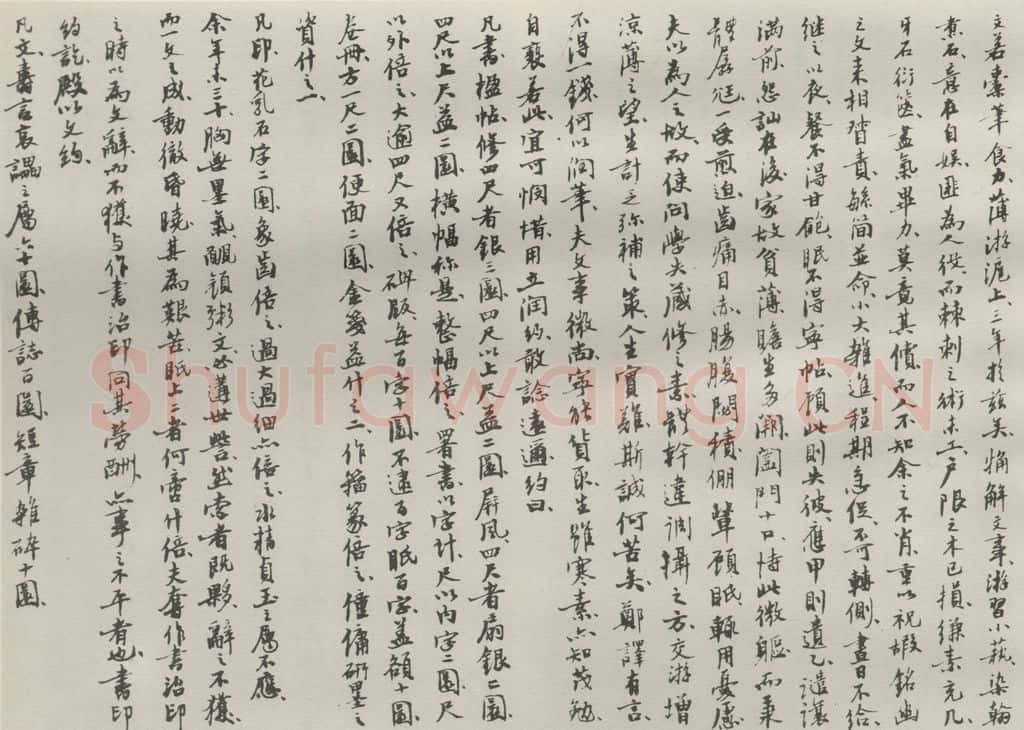 文若橐筆食力薄游滬上三年於兹矣觕解文章游習小蓺染翰
煮石意在自娛匪為人役而棘刺之術未工戶限之木已損縑素充几
牙石衍篋盡氣畢力莫竟其償而人不知余之不肖重以祝嘏銘幽
之文来相督責緐簡並命小大雜進程期急促不可轉側晝日不給
继之以夜餐不得甘飽眠不得寧帖顧此則失彼應甲則遺乙譴讓
满前怨訕在後家故貧薄贍生多闕闔門十口恃此微軀而秉
體孱尫一受煎迫齒痛目赤腸腹閼積倗輩顧眂輒用憂慮
夫以為人之故而使问學失藏修之素躬幹違調攝之方交游增
涼薄之望生計乏弥補之策人生實難斯誠何苦矣鄭譯有言
不得一錢何以润筆夫文事微尚寧能貨取生雖寒素亦知茂勉
自襮若此宜可憫惜用立润约敢諗遠邇约曰
凡書楹帖修四尺者銀三圓四尺以上尺益二圓屏風四尺者扇銀二圓
四尺以上尺益二圓橫幅称是整幅倍之署書以字计尺以内字二圓尺
以外倍之大逾四尺又倍之碑版每百字十圓不逮百字眂百字蓋額十圓
卷冊方一尺二圓便面二圓金箋益什之二作籀篆倍之僮傭研墨之
資什之一
凡印花乳石字二圓象齒倍之過大過細亦倍之水精貞玉之屬不應
余年未三十胸無墨氣靦顏粥文世訾然索者既夥辭之不獲
而一文之成動徹昏曉其為艱苦眂上二者何啻什倍夫奪作書治印
之時以為文辭而不獲与作書治印同其勞酬亦事之不平者也書印
约訖殿以文约
凡文壽言哀之屬六十圓傳誌百圓短章雜碎十圓
Shufawang.CN